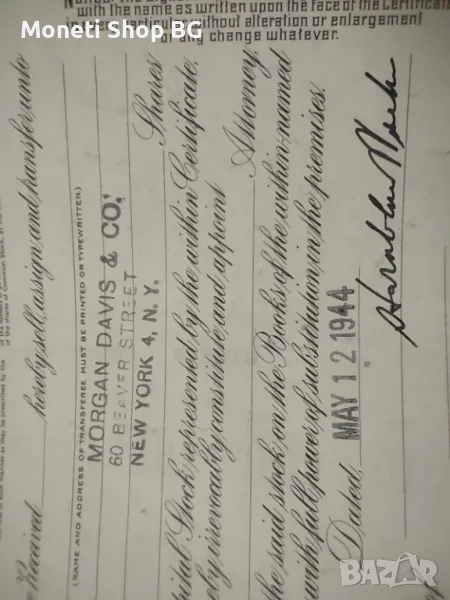 Moneti Shop BG
with the name as written upon the face of the Certificate
in every particular without alteration or enlargement
or any change whatever.
Received hereby sell, assign and transfer, unto
(NAME AND ADDRESS OF TRANSFEREE MUST BE PRINTED OR TYPEWRITTEN.)
MORGAN DAVIS & CO.
60 BEAVER STREET
NEW YORK 4, N. Y.
Shares
Stock, represented, by the within Certificate,
irrevocably constitute, and, appoint
Attorney,
the said stock, on the Books of the within-named
with full power of substitution, in the premises.
Dated, MAY 12 1944
bazar